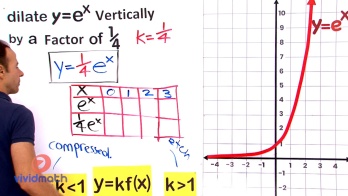 dilate y=eˣ Vertically
by a Factor of 1/4 k=1/4
y=1/4eˣ
x 0 1 2 3
eˣ
1/4eˣ
compressed
vividmath
k<1 y=kf(x) k>1
y=eˣ
10
8
6
4
2
-4 -3 -2 -1 0 1 2 3 4